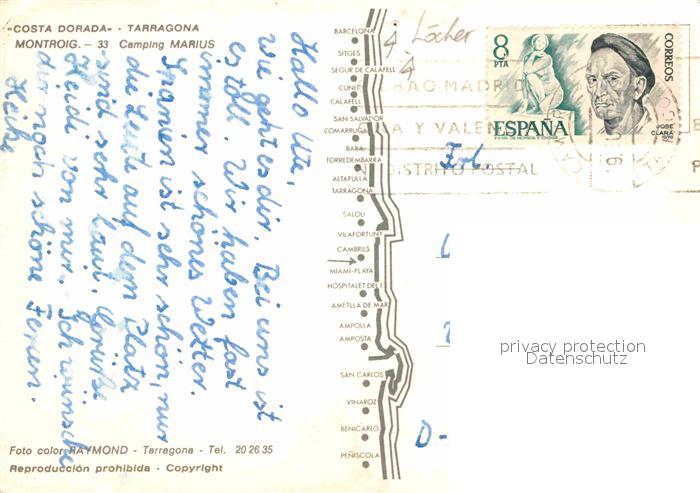 "COSTA DORADA" - TARRAGONA
MONTROIG. - 33 Camping MARIUS
Hallo Ute,
wie geht es dir. Bei uns ist
es toll. Wir haben fast
immer schönes Wetter.
Spanien ist sehr schön, nur
die Leute auf dem Platz
sind sehr laut. Grüße
Heidi von mir. Ich wünsche
dir noch schöne Ferien.
Heike
Foto color RAYMOND - Tarragona - Tel. 20 26 35
Reproducción prohibida - Copyright
BARCELONA
SITGES
SEGUR DE CALAFELL
CUNIT
CALAFELL
SAN SALVADOR
COMARRUGA
BARA
TORREDEMBARRA
ALTAFULLA
TARRAGONA
SALOU
VILAFORTUNY
CAMBRILS
MIAMI-PLAYA
HOSPITALET DEL I.
AMETLLA DE MAR
AMPOLLA
AMPOSTA
SAN CARLOS
VINAROZ
BENICARLO
PEÑISCOLA
Löcher
BAO MADRID
A Y VALEN
DISTRITO POSTAL
8
PTA
CORREOS
JOSE
CLARA
ESPAÑA
D-
privacy protection
Datenschutz